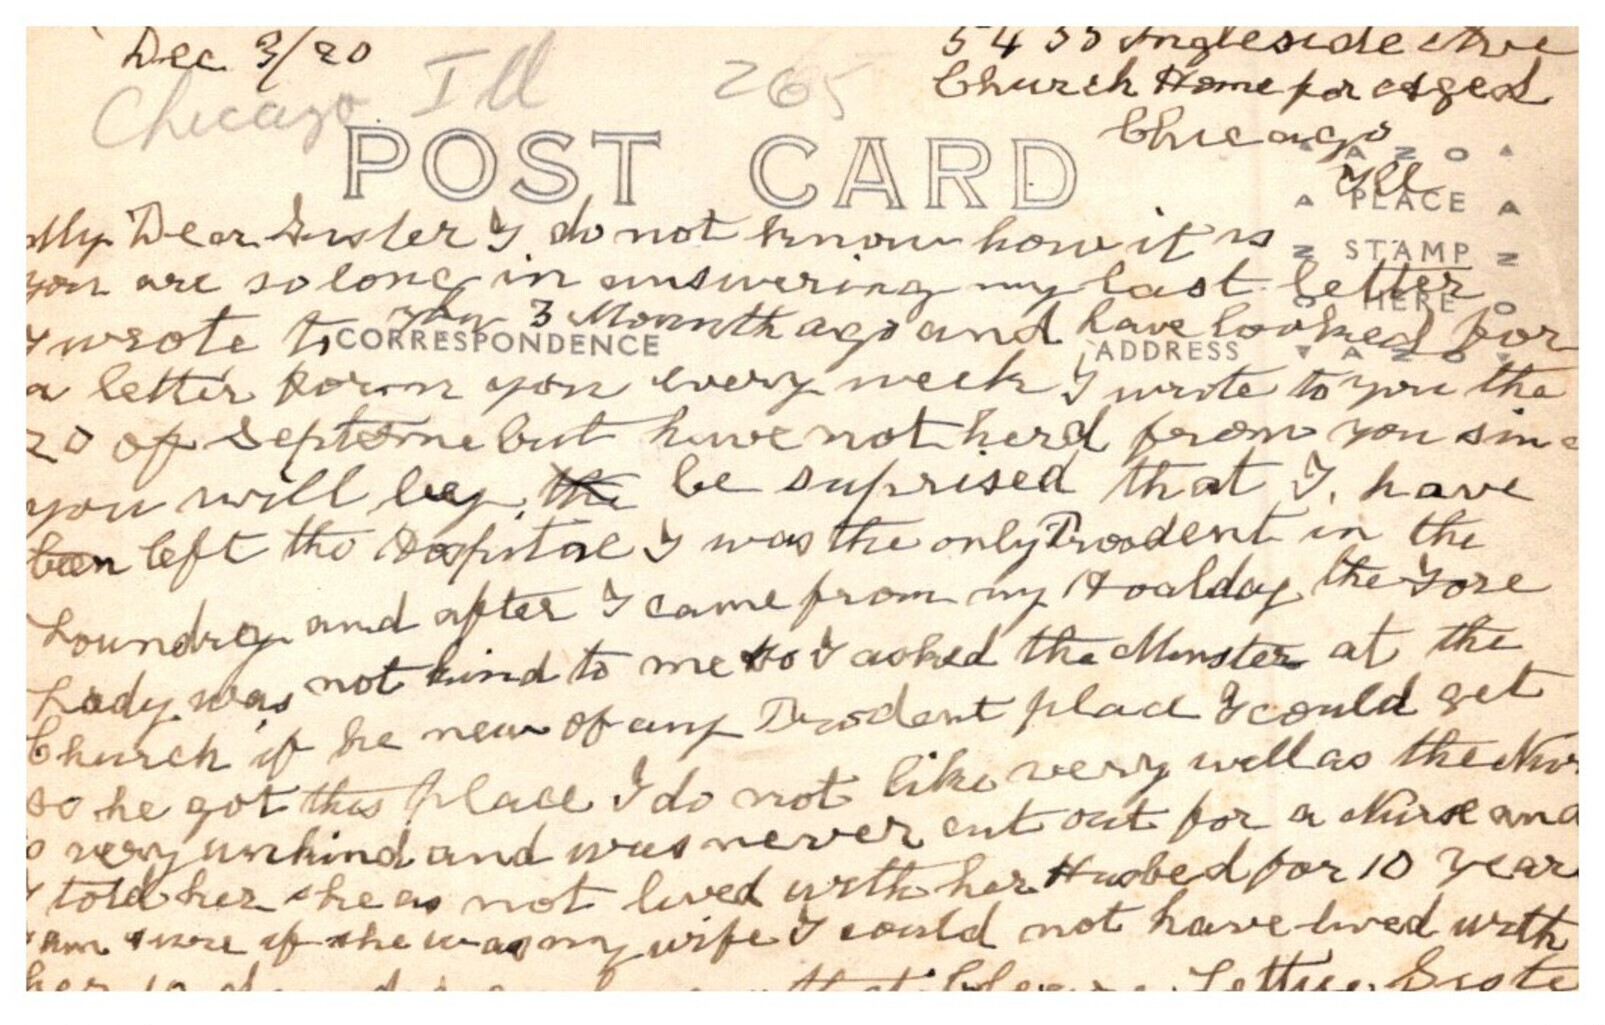 Dec 3/20
5435 Ingleside Ave
Chicago Ill 265
Church Home for Aged
Chicago
Ill
POST CARD
PLACE
STAMP
HERE
AZO
CORRESPONDENCE
ADDRESS
My Dear Sister I do not know how it is
you are so long in answering my last letter
I wrote to you 3 Mounth ago and have looked for
a letter form you every week I wrote to you the
20 of Septeme but have not herd from you sinc
you will be suprised that I have
been left the Hospital I was the only Prodent in the
Loundry and after I came from my Hoalday the Fore
Lady was not kind to me so I asked the Minster at the
Church if he new of any Prodent place I could get
so he got this place I do not like very well as the Nur
very unkind and was never cut out for a Nurse and
I told her she as not lived with her Husbed for 10 year
am sure if she was my wife I could not have lived with
her 10 that Lettie Siste